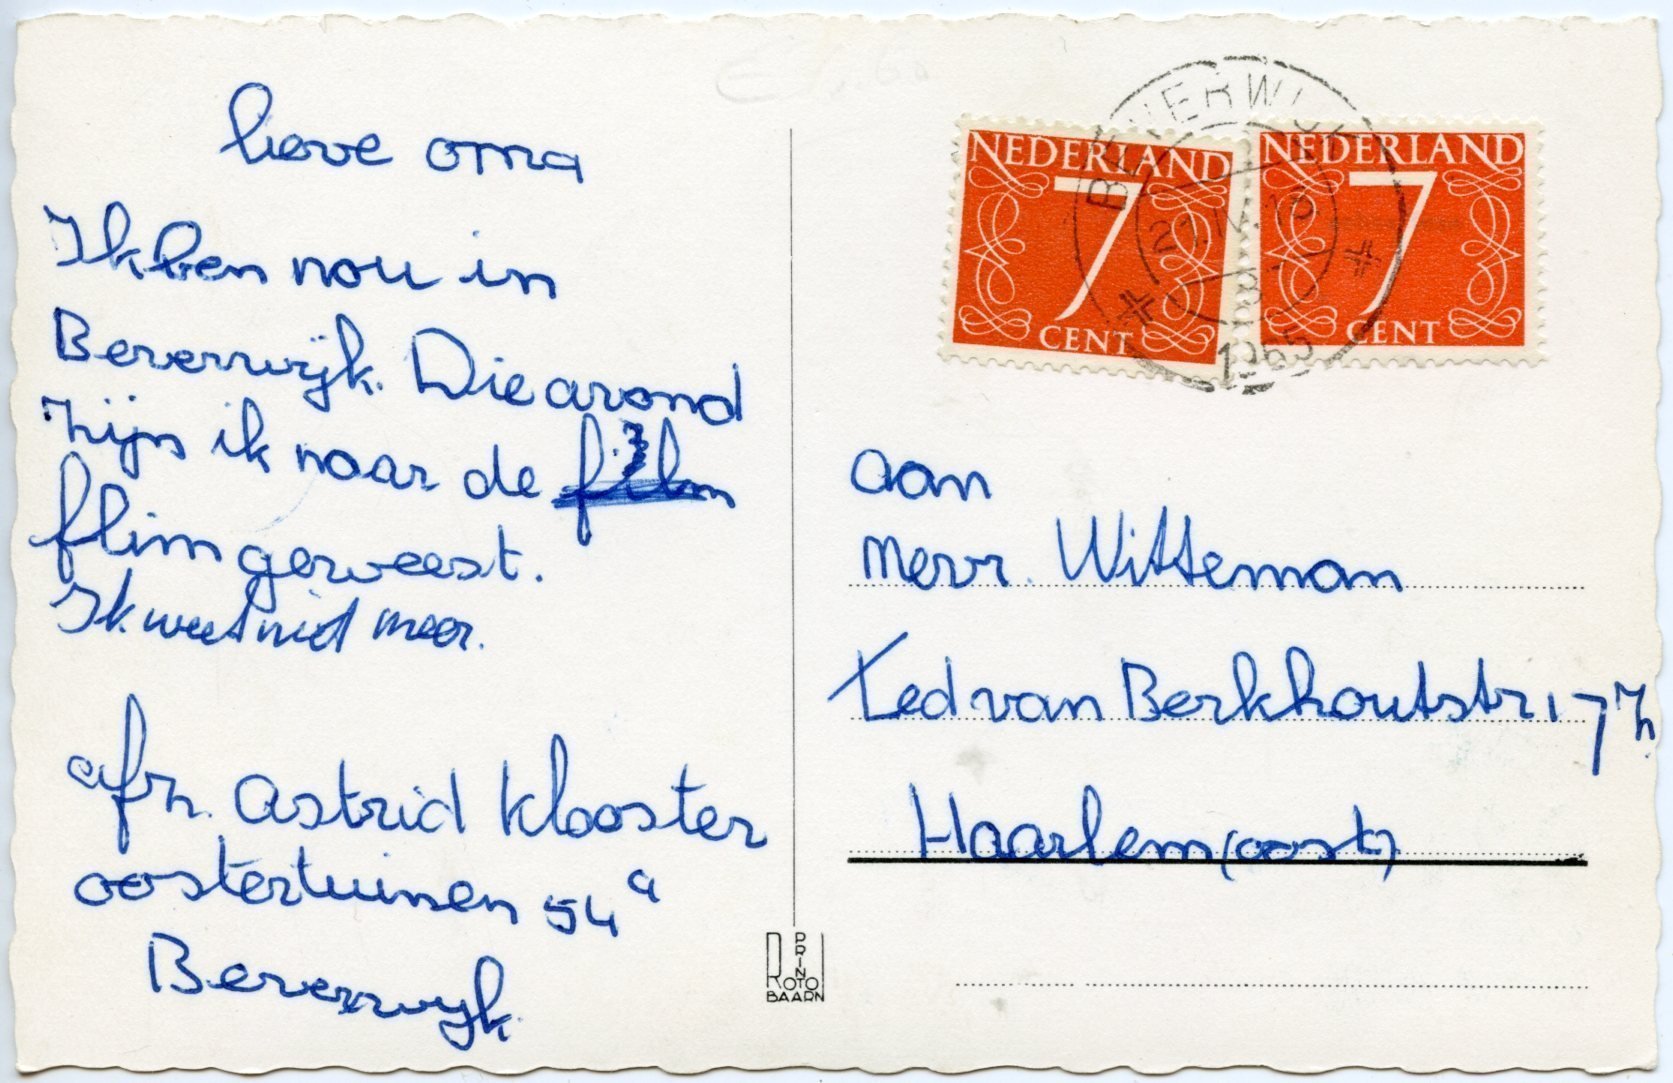 lieve oma
Ik ben nou in
Beverwijk. Die avond
zijn ik naar de film
flim geweest.
Ik weet niet meer.
afz. Astrid Klooster
oostertuinen 54 a
Beverwijk.
NEDERLAND
7
CENT
NEDERLAND
7
CENT
BEVERWIJK
1965
aan
Mevr. Witteman
Ted van Berkhoutstr 17 z
Haarlem (oost)
PRINT
ROTO
BAARN